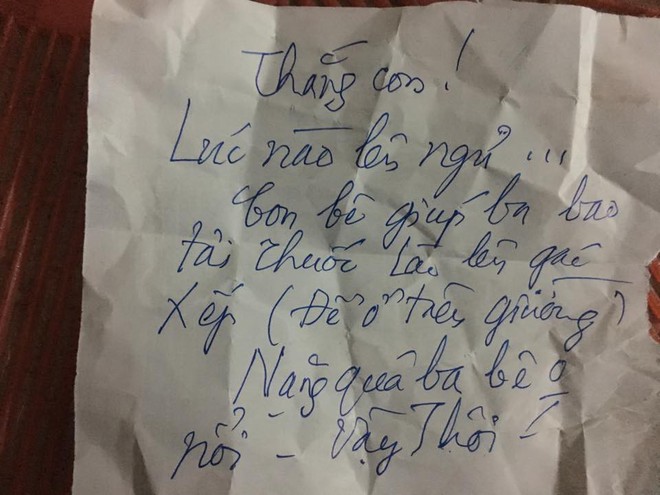 Thắng con!
Lúc nào lên ngủ ...
Con bê giúp ba bao
tải thuốc Lào lên gác
xếp (Để ở trên giường)
Nặng quá ba bê 0
nổi - Vậy Thôi -